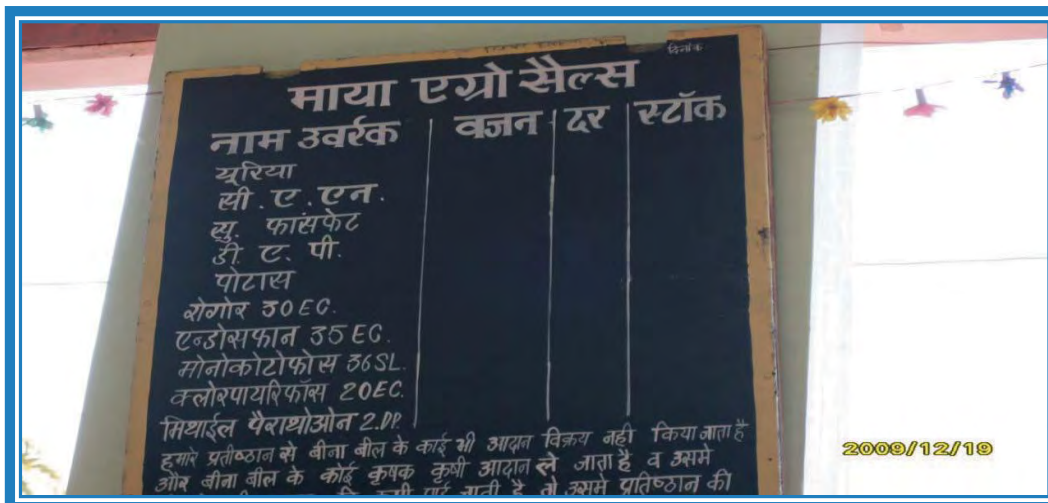 दिनांक
माया एग्रो सैल्स
नाम उवर्रक वजन दर स्टॉक
यूरिया
सी. ए. एन.
सु. फांसफेट
डी. ए. पी.
पोटास
रोगोर 30EC.
एन्डोसफान 35EC.
मोनोकोटोफोस 36SL.
क्लोरपायरिफॉस 20EC.
मिथाईल पैराथीओन 2.DP.
हमारे प्रतीष्ठान से बीना बील के कोई भी आदान विक्रय नही किया जाता है
और बीना बील के कोई कृषक कृषी आदान ले जाता है व उसमे
पाई जाती है तो उसमे प्रतिष्ठान की
2009/12/19